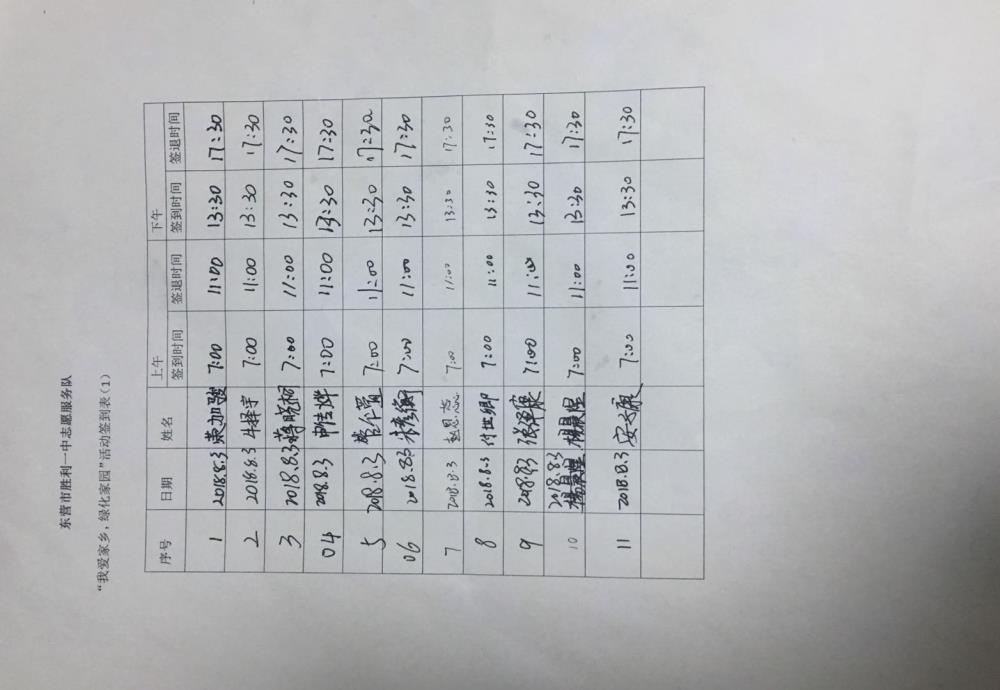 东营市胜利一中志愿服务队
“我爱家乡，绿化家园”活动签到表（1）
序号 日期 姓名 上午 下午
签到时间 签退时间 签到时间 签退时间
1 2018.8.3 荣加骏 7:00 11:00 13:30 17:30
2 2018.8.3 牛择宇 7:00 11:00 13:30 17:30
3 2018.8.3 蒋晓桐 7:00 11:00 13:30 17:30
04 2018.8.3 申佳烨 7:00 11:00 13:30 17:30
5 2018.8.3 7:00 11:00 13:30 17:30
06 2018.8.3 7:00 11:00 13:30 17:30
7 2018.8.3 赵思志 7:00 11:00 13:30 17:30
8 2018.8.3 付世卿 7:00 11:00 13:30 17:30
9 2018.8.3 张泽宸 7:00 11:00 13:30 17:30
10 2018.8.3 杨晨煜 7:00 11:00 13:30 17:30
11 2018.8.3 安子康 7:00 11:00 13:30 17:30